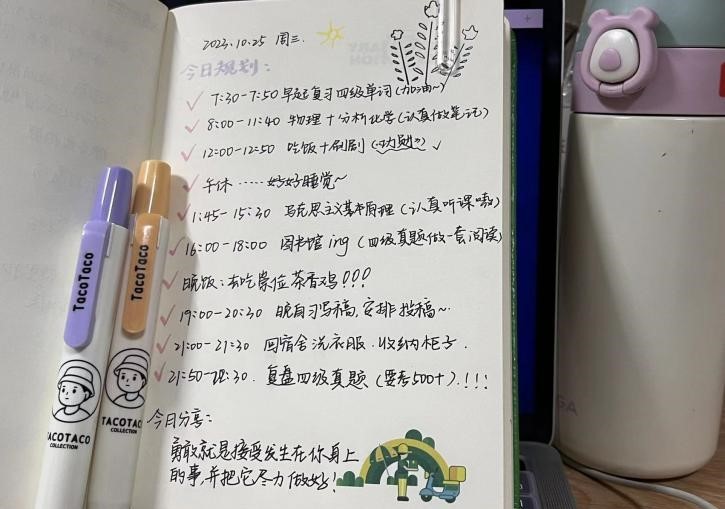 2023.10.25 周三.
今日规划:
7:30-7:50 早起复习四级单词(加油~)
8:00-11:40 物理+分析化学(认真做笔记)
12:00-12:50 吃饭+刷剧
午休 ······好好睡觉~
1:45-15:30 马克思主义基本原理(认真听课嗷)
16:00-18:00 图书馆ing (四级真题做一套阅读)
晚饭:去吃崇位茶香鸡!!!
19:00-20:30 晚自习写稿,安排投稿~
21:00-21:30 回宿舍洗衣服.收纳柜子.
21:50-22:30. 复盘四级真题 (要考500+).!!!
今日分享:
勇敢就是接受发生在你身上
的事,并把它尽力做好!
TacoTaco
TacoTaco
TACOTACO
COLLECTION
TACOTACO
COLLECTION